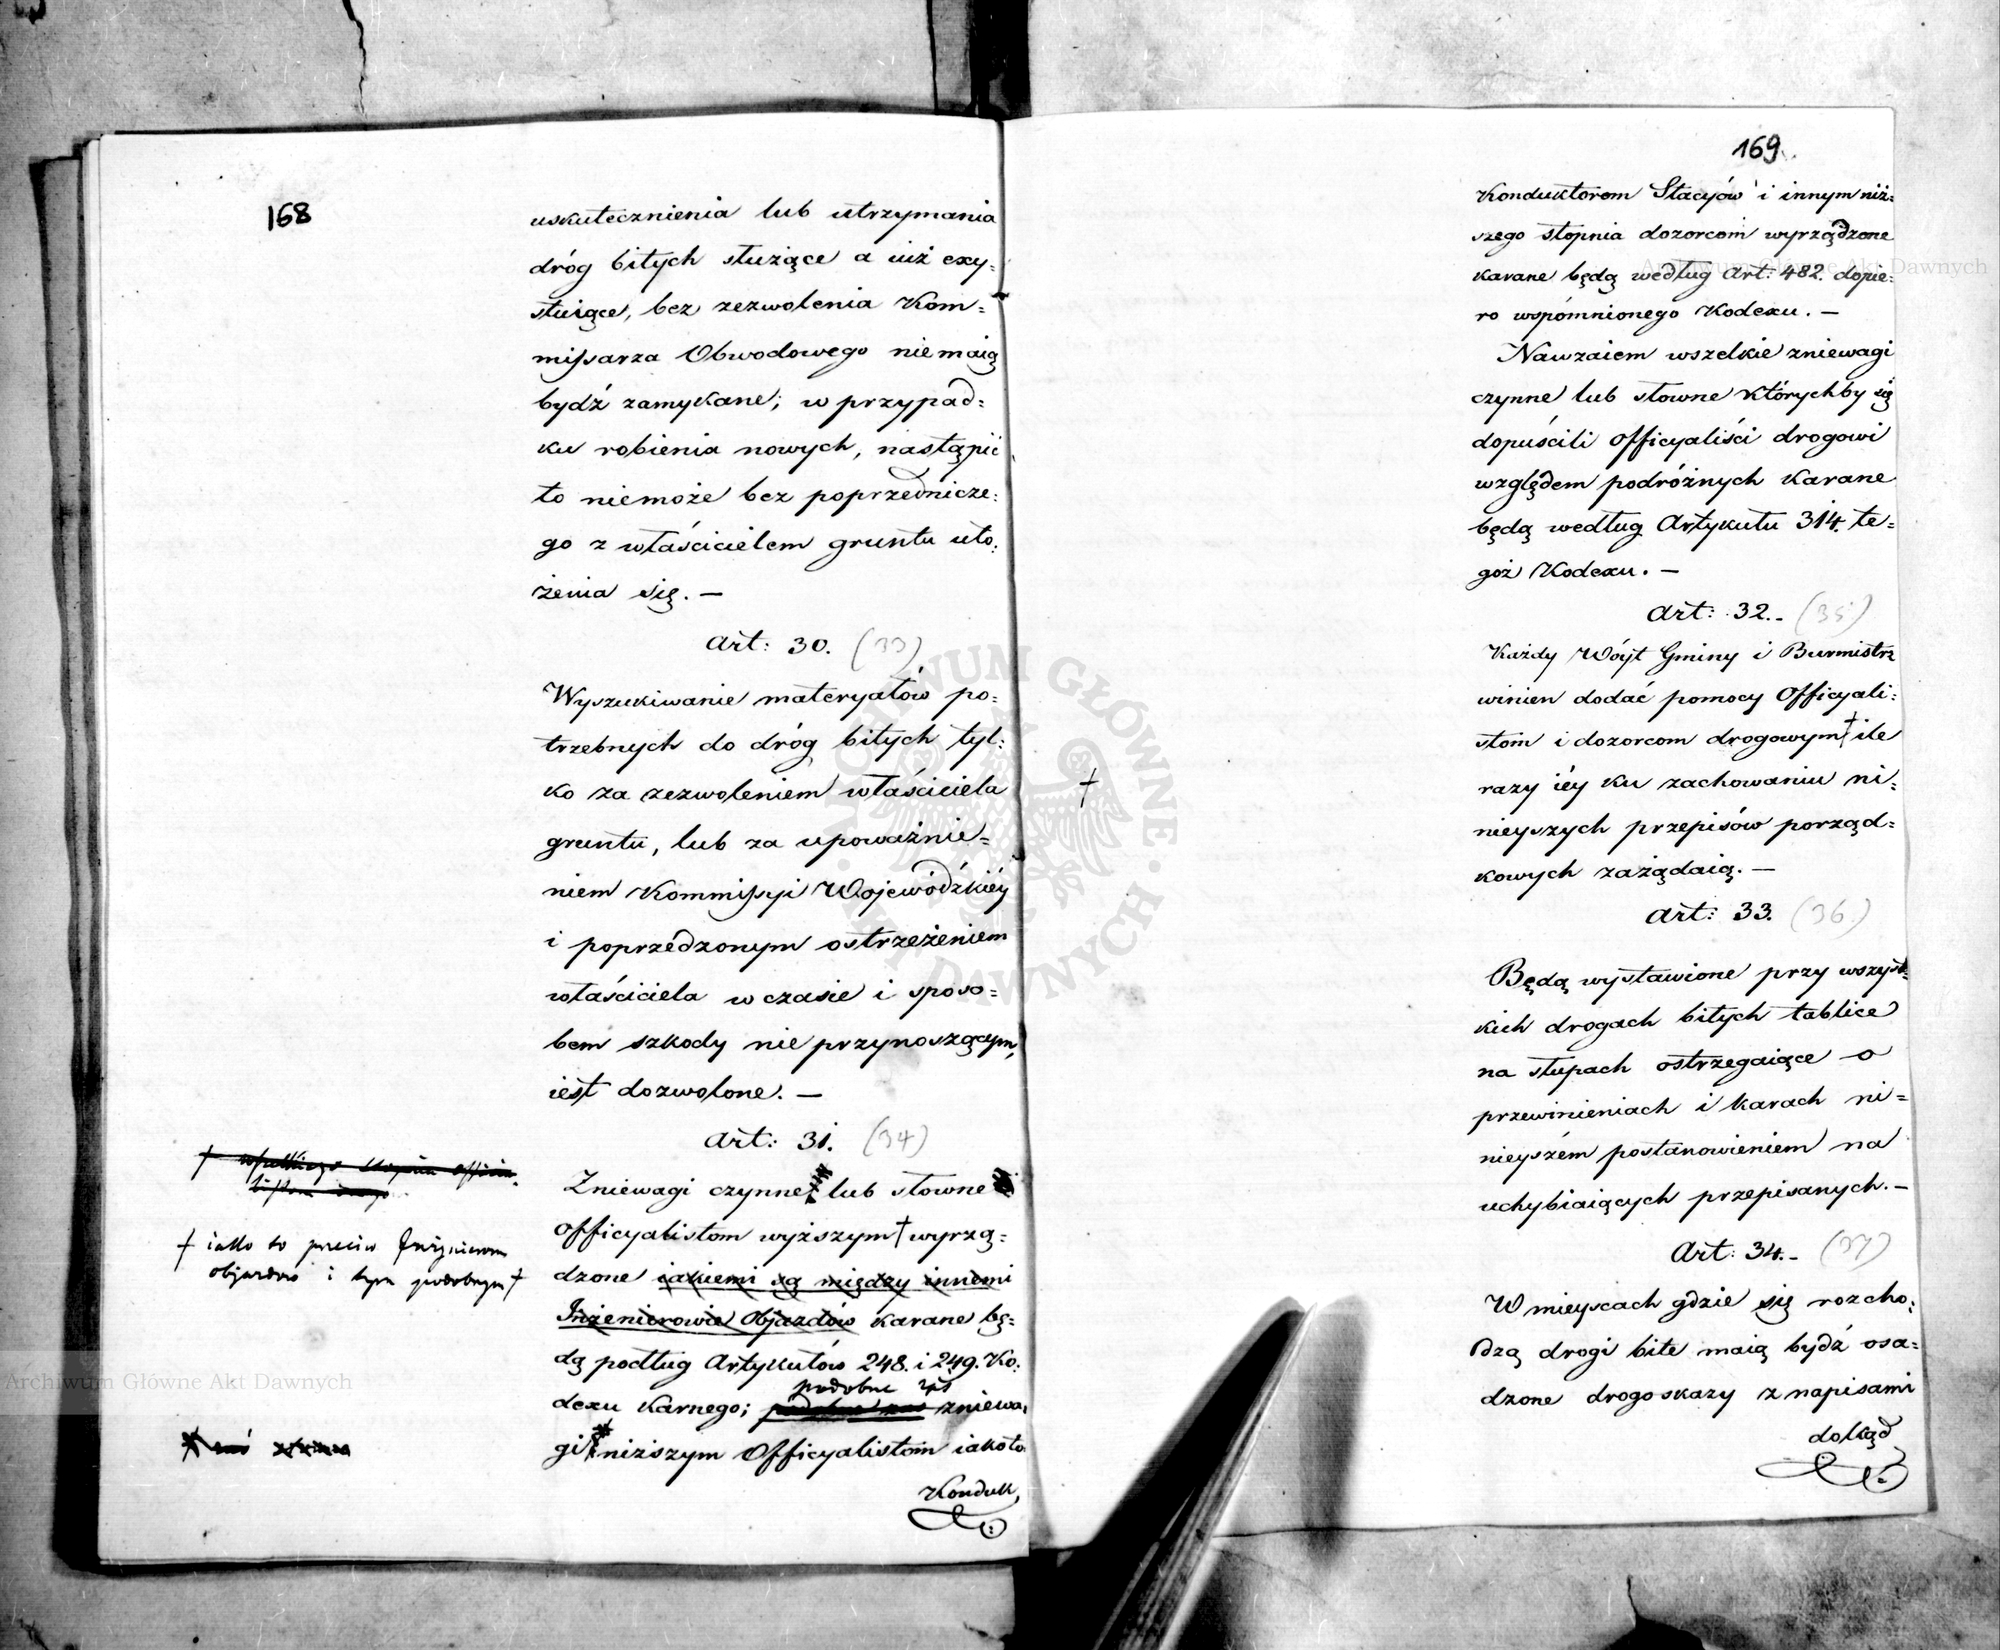 168
uskutecznienia lub utrzymania
dróg bitych służące a iuż exy=
stuiące, bez zezwolenia Kom=
missarza Obwodowego nie maią
bydź zamykane; w przypad=
ku robienia nowych, nastąpić
to niemoże bez poprzednicze=
go z właścicielem gruntu uło=
żenia się. —
Art: 30. (33)
Wyszukiwanie materyałów po=
trzebnych do dróg bitych tyl=
ko za zezwoleniem właściciela
gruntu, lub za upoważnie=
niem Kommissyi Wojewódzkiéy
i poprzedzonym ostrzeżeniem
właściciela w czasie i sposo=
bem szkody nie przynoszącym,
iest dozwolone. —
Art: 31. (34)
Zniewagi czynne lub słowne
Officyalistom wyższym † wyrzą=
dzone iakiemi są między innemi
Inżenierowie Objazdów karane bę=
dą podług Artykułów 248. i 249. Ko=
podobne zaś
dexu Karnego; podobne zaś zniewa=
gi niższym Officyalistom iakoto
Konduk,
† iako to przeciw Inżynierom
objazdów i tym podobnym †
169
Konduktorom Stacyów i innym niż=
szego stopnia dozorcom wyrządzone
karane będą według Art: 482. dopie=
ro wspomnionego Kodexu. —
Nawzaiem wszelkie zniewagi
czynne lub słowne którychby się
dopuścili Officyaliści drogowi
względem podróżnych karane
będą według Artykułu 314. te=
goż Kodexu. —
Art: 32. (35)
Każdy Wóyt Gminy i Burmistrz
winien dodać pomocy Officyali=
stom i dozorcom drogowym † ile
†
razy iéy ku zachowaniu ni=
nieyszych przepisów porząd=
kowych zażądaią. —
Art: 33. (36)
Będą wystawione przy wszyst=
kich drogach bitych tablice
na słupach ostrzegaiące o
przewinieniach i karach ni=
nieyszém postanowieniem na
uchybiaiących przepisanych. —
Art: 34. (37)
W mieyscach gdzie się rozcho=
dzą drogi bite maią bydź osa=
dzone drogoskazy z napisami
dokąd
ARCHIWUM GŁÓWNE AKT DAWNYCH
Archiwum Główne Akt Dawnych
Archiwum Główne Akt Dawnych